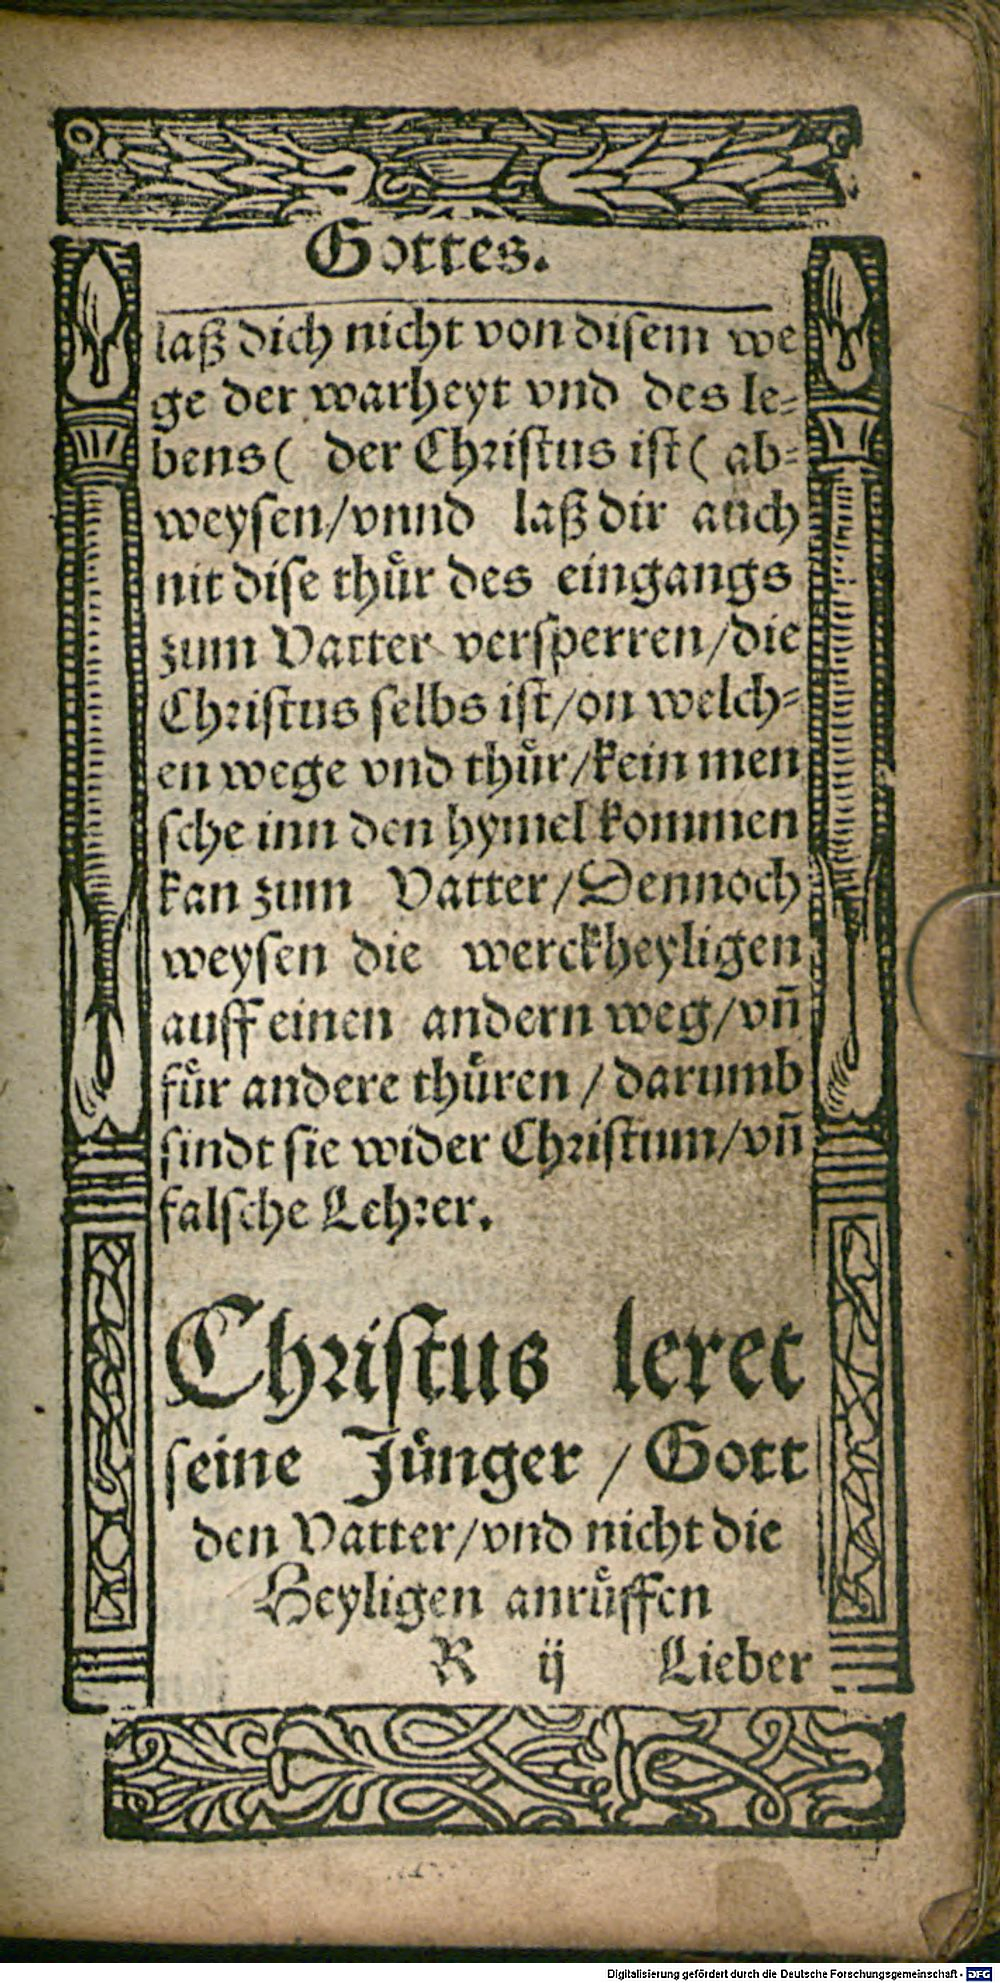 Gottes.
laß dich nicht von disem we
ge der warheyt vnd des le⸗
bens ( der Christus ist ( ab⸗
weysen/vnnd laß dir auch
nit dise thuͤr des eingangs
zum Vatter versperren/die
Christus selbs ist/on welch⸗
en wege vnd thuͤr/kein men
sche inn den hymel kommen
kan zum Vatter/Dennoch
weysen die werckheyligen
auff einen andern weg/vñ
fuͤr andere thuͤren/darumb
sindt sie wider Christum/vñ
falsche Lehrer.
Christus leret
seine Juͤnger/Gott
den Vatter/vnd nicht die
Heyligen anruͤffen
R ij Lieber
Digitalisierung gefördert durch die Deutsche Forschungsgemeinschaft - DFG